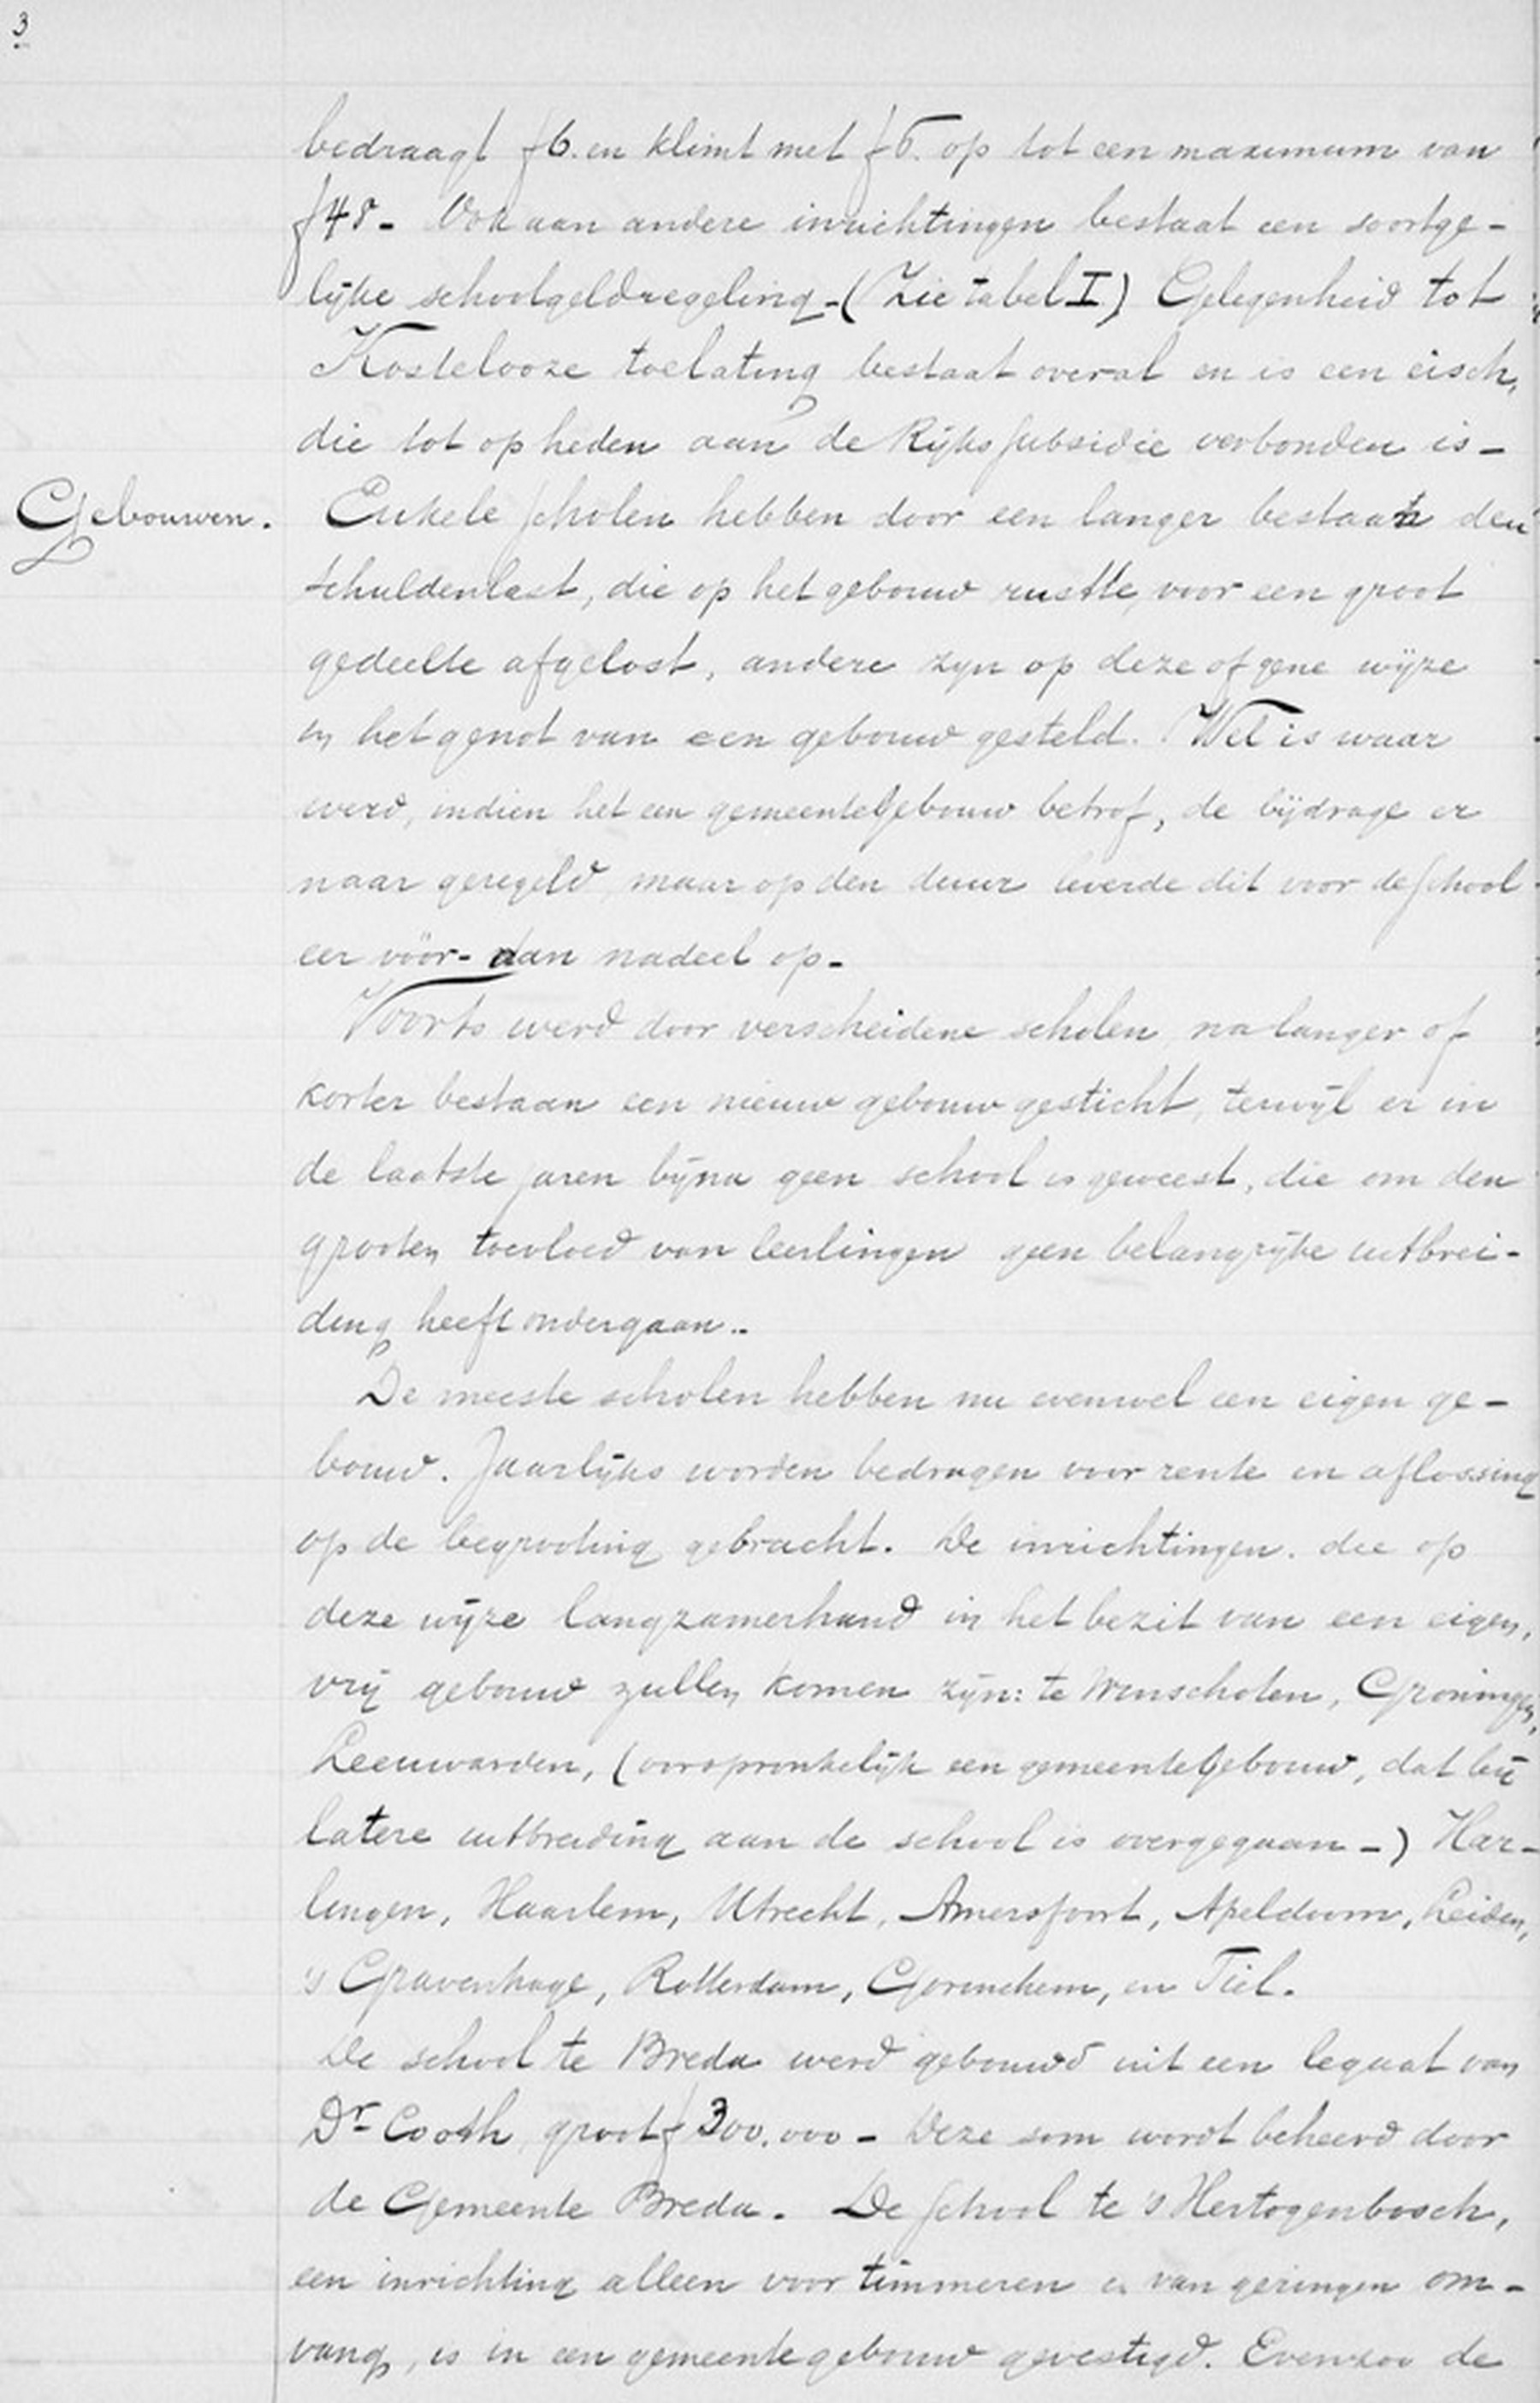 3
bedraagt f6. en klimt met f6. op tot een maximum van
f48- Ook aan andere inrichtingen bestaat een soortge-
lijke schoolgeldregeling-(Zie tabel I) Gelegenheid tot
Kostelooze toelating bestaat overal en is een eisch,
die tot op heden aan de Rijkssubsidie verbonden is-
Gebouwen. Enkele scholen hebben door een langer bestaan den
schuldenlast, die op het gebouw rustte, voor een groot
gedeelte afgelost, andere zyn op deze of gene wijze
in het genot van een gebouw gesteld. Wel is waar
werd, indien het een gemeentegebouw betrof, de bijdrage er
naar geregeld, maar op den duur leverde dit voor de school
eer vóór- dan nadeel op-
Voorts werd door verscheidene scholen na langer of
korter bestaan een nieuw gebouw gesticht, terwijl er in
de laatste jaren bijna geen school is geweest, die om den
grooten toevloed van leerlingen geen belangrijke uitbrei-
ding heeft ondergaan..
De meeste scholen hebben nu evenwel een eigen ge-
bouw. Jaarlijks worden bedragen voor rente en aflossing
op de begrooting gebracht. De inrichtingen. die op
deze wijze langzamerhand in het bezit van een eigen,
vrij gebouw zullen komen zijn: te Winschoten, Groningen,
Leeuwarden, (oorspronkelijk een gemeentegebouw, dat bij
latere uitbreiding aan de school is overgegaan-) Har-
lingen, Haarlem, Utrecht, Amersfoort, Apeldoorn, Leiden,
's Gravenhage, Rotterdam, Gorinchem, en Tiel.
De school te Breda werd gebouwd uit een legaat van
Dr Cooth, groot f300.000- Deze som wordt beheerd door
de Gemeente Breda. De school te 's Hertogenbosch,
een inrichting alleen voor timmeren en van geringen om-
vang, is in een gemeentegebouw gevestigd. Evenzoo de